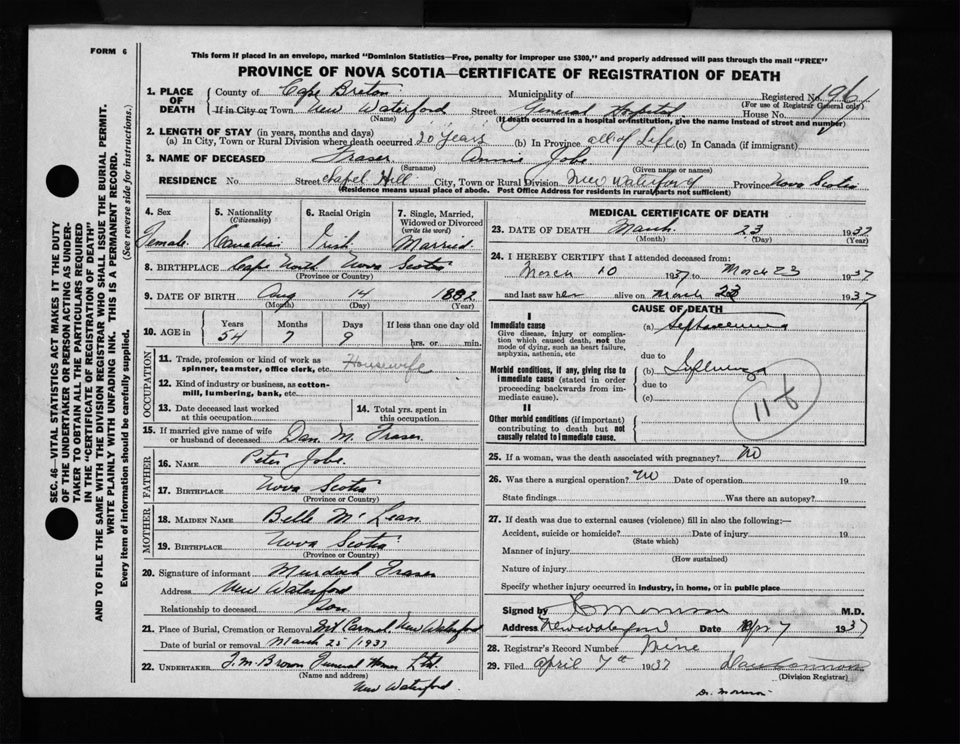 FORM 6
This form if placed in an envelope, marked "Dominion Statistics—Free, penalty for improper use $300," and properly addressed will pass through the mail "FREE"
PROVINCE OF NOVA SCOTIA—CERTIFICATE OF REGISTRATION OF DEATH
1. PLACE OF DEATH County of Cape Breton Municipality of Registered No. 961
(For use of Registrar General only)
If in City or Town New Waterford Street General Hospital House No.
(Name) (If death occurred in a hospital or institution, give the name instead of street and number)
2. LENGTH OF STAY (in years, months and days)
(a) In City, Town or Rural Division where death occurred 20 years (b) In Province all of Life (c) In Canada (if immigrant)
3. NAME OF DECEASED Fraser Annie Jobe
(Surname) (Given name or names)
RESIDENCE No. Street Chapel Hill City, Town or Rural Division New Waterford Province Nova Scotia
(Residence means usual place of abode. Post Office Address for residents in rural parts not sufficient)
4. Sex 5. Nationality (Citizenship) 6. Racial Origin 7. Single, Married, Widowed or Divorced (write the word)
Female Canadian Irish Married
8. BIRTHPLACE Cape North Nova Scotia
(Province or Country)
9. DATE OF BIRTH Aug 14 1882
(Month) (Day) (Year)
10. AGE in Years Months Days If less than one day old
54 7 9 hrs. or min.
OCCUPATION
11. Trade, profession or kind of work as spinner, teamster, office clerk, etc. Housewife
12. Kind of industry or business, as cotton-mill, lumbering, bank, etc.
13. Date deceased last worked at this occupation
14. Total yrs. spent in this occupation
15. If married give name of wife or husband of deceased Dan. M. Fraser
FATHER
16. NAME Peter Jobe
17. BIRTHPLACE Nova Scotia
(Province or Country)
MOTHER
18. MAIDEN NAME Belle McLean
19. BIRTHPLACE Nova Scotia
(Province or Country)
20. Signature of informant Murdoch Fraser
Address New Waterford
Relationship to deceased Son.
21. Place of Burial, Cremation or Removal Mt Carmel, New Waterford
Date of burial or removal March 25/1937
22. UNDERTAKER J.M. Brown Funeral Home Ltd.
(Name and address)
New Waterford.
MEDICAL CERTIFICATE OF DEATH
23. DATE OF DEATH March 23 1937
(Month) (Day) (Year)
24. I HEREBY CERTIFY that I attended deceased from:
March 10 1937 to March 23 1937
and last saw her alive on March 23 1937
CAUSE OF DEATH
I
Immediate cause
Give disease, injury or complication which caused death, not the mode of dying, such as heart failure, asphyxia, asthenia, etc
(a) Septicaemia
due to
Morbid conditions, if any, giving rise to immediate cause (stated in order proceeding backwards from immediate cause).
(b) Influenza
due to
(c)
II
Other morbid conditions (if important) contributing to death but not causally related to immediate cause.
25. If a woman, was the death associated with pregnancy? No
26. Was there a surgical operation? No Date of operation 19
State findings Was there an autopsy?
27. If death was due to external causes (violence) fill in also the following:—
Accident, suicide or homicide? Date of injury 19
(State which)
Manner of injury
(How sustained)
Nature of injury
Specify whether injury occurred in industry, in home, or in public place
Signed by Morrison M.D.
Address New Waterford Date Apr 7 1937
28. Registrar's Record Number Nine
29. Filed April 7th 1937
(Division Registrar)
Dr. Morrison
SEC. 46—VITAL STATISTICS ACT MAKES IT THE DUTY
OF THE UNDERTAKER OR PERSON ACTING AS UNDER-
TAKER TO OBTAIN ALL THE PARTICULARS REQUIRED
IN THE "CERTIFICATE OF REGISTRATION OF DEATH"
AND TO FILE THE SAME WITH THE DIVISION REGISTRAR WHO SHALL ISSUE THE BURIAL PERMIT.
WRITE PLAINLY WITH UNFADING INK. THIS IS A PERMANENT RECORD.
Every item of information should be carefully supplied. (See reverse side for instructions.)